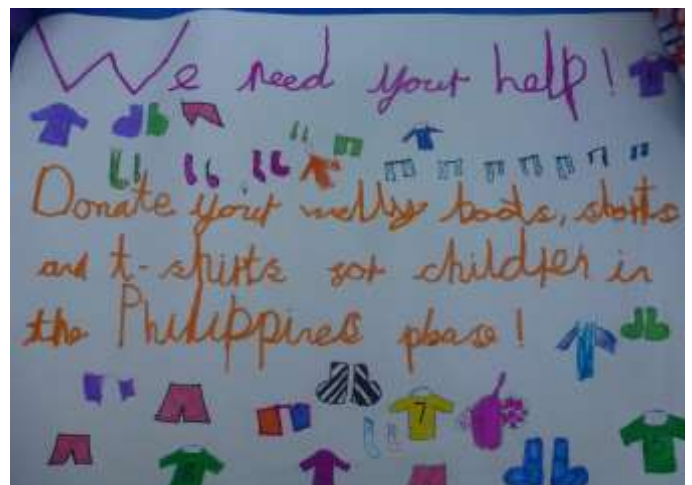 We need your help!
Donate your welly boots, shorts
and t-shirts for children in
the Philippines please!
7